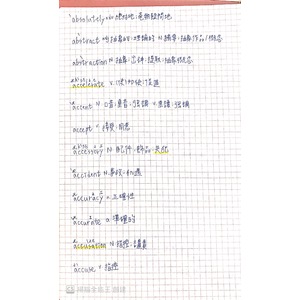 absolutely adv 絕對地;毫無疑問地
abstract adj 抽象的 N 摘要;抽象作品/概念
abstraction N 抽象;提取;抽象概念
accelerate v. (使)加快;促進
accent N 口音;重音;強調 v 重讀;強調
accept v 接受;同意
accessory N 配件;飾品;共犯
accident N 事故;機遇
accuracy n 正確性
accurate a 準確的
accusation N 指控;譴責
accuse v 指控